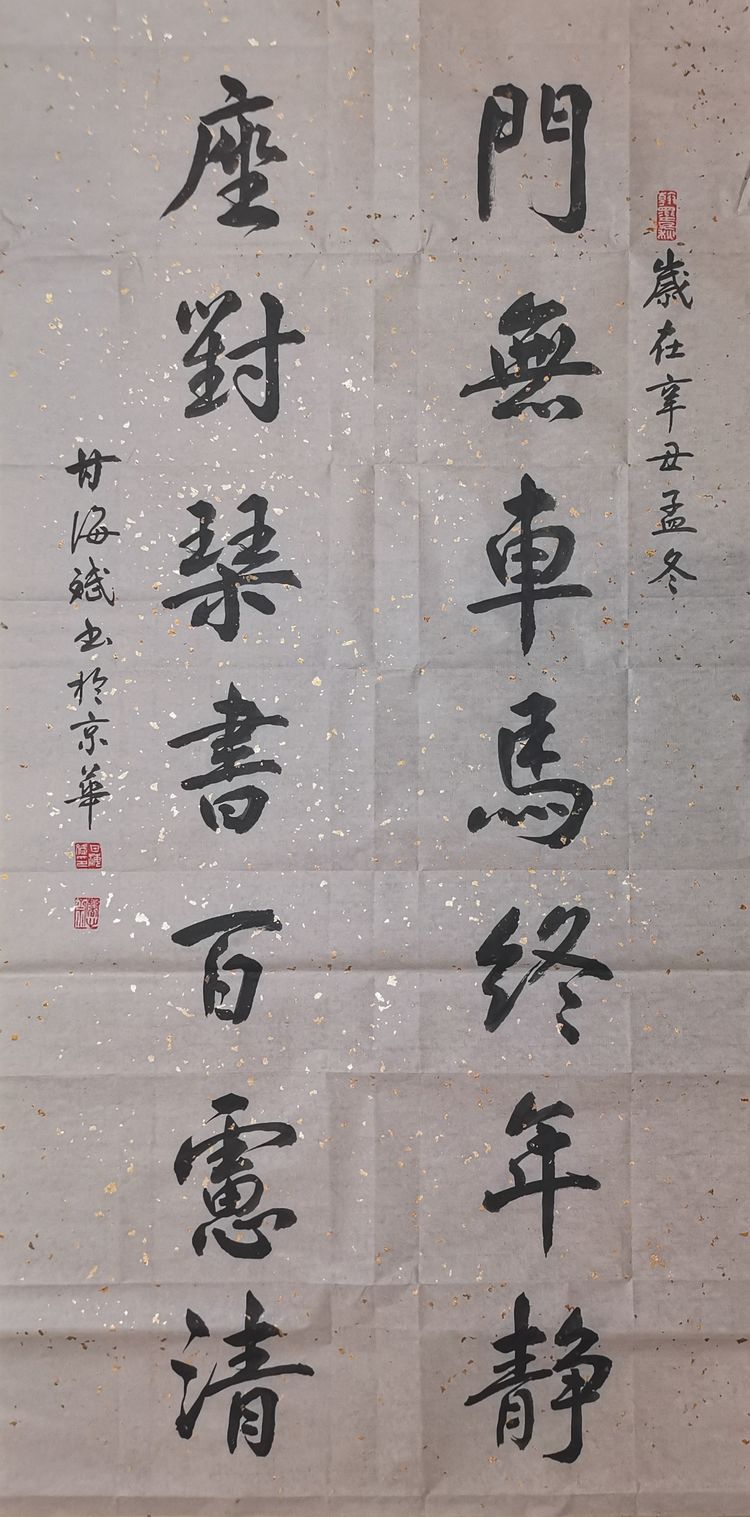 歲在辛丑孟冬
門無車馬終年静
座對琴書百慮清
甘海斌书於京華